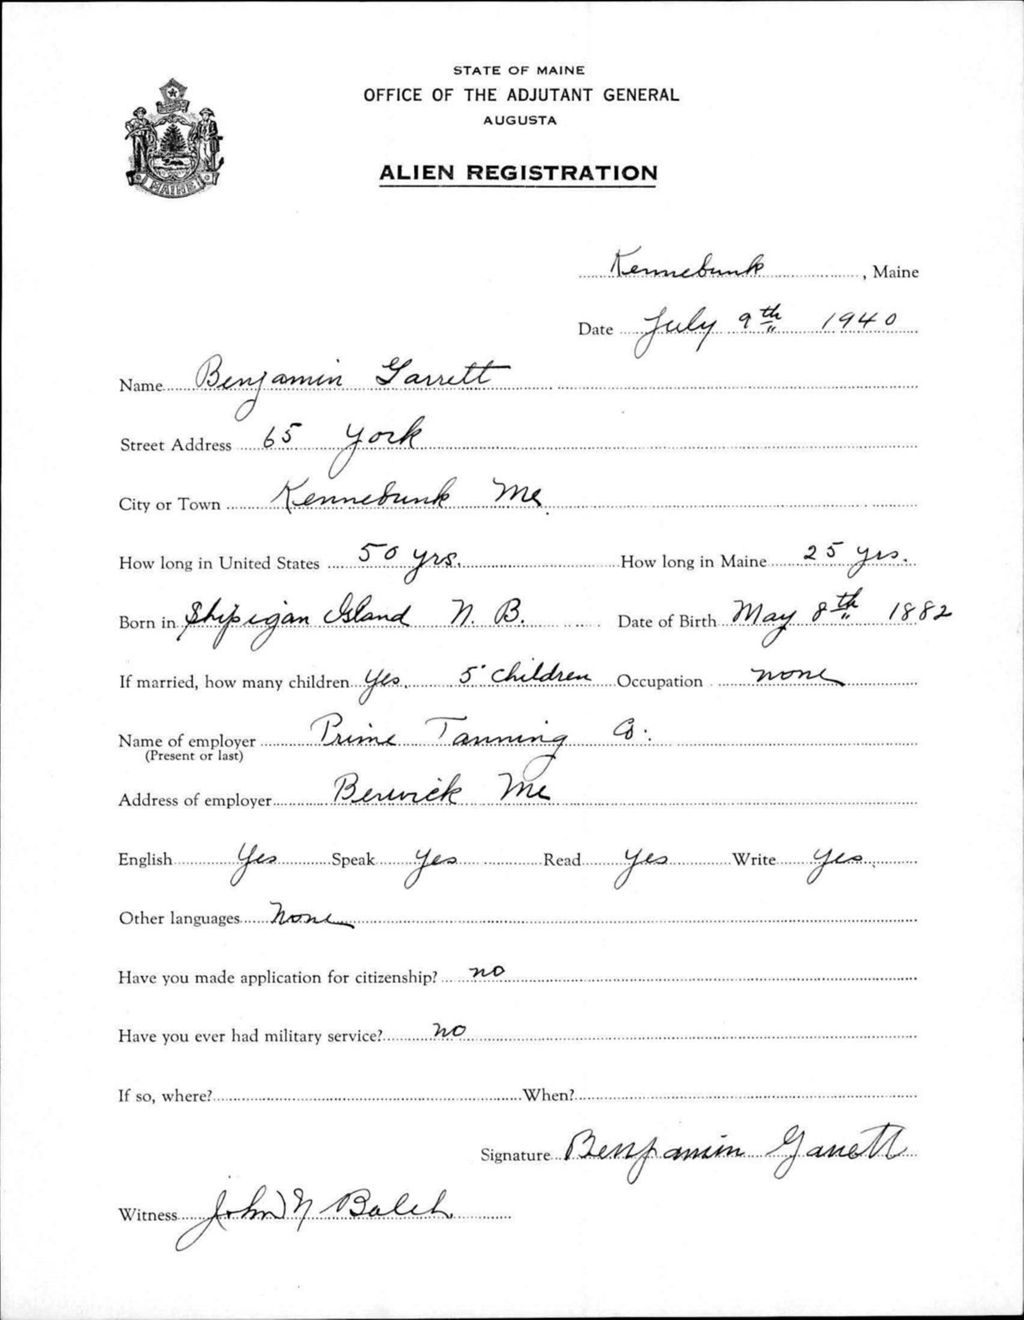 STATE OF MAINE
OFFICE OF THE ADJUTANT GENERAL
AUGUSTA
ALIEN REGISTRATION
MAINE
Kennebunk, Maine
Date July 9th 1940
Name Benjamin Garrett
Street Address 65 York
City or Town Kennebunk Me
How long in United States 50 yrs. How long in Maine 25 yrs.
Born in Shipigan Island N. B. Date of Birth May 8th 1882
If married, how many children Yes. 5 children Occupation none
Name of employer Prime Tanning Co.
(Present or last)
Address of employer Berwick Me
English Yes Speak Yes Read Yes Write Yes.
Other languages None
Have you made application for citizenship? no
Have you ever had military service? no
If so, where? When?
Signature Benjamin Garrett
Witness John N Balch